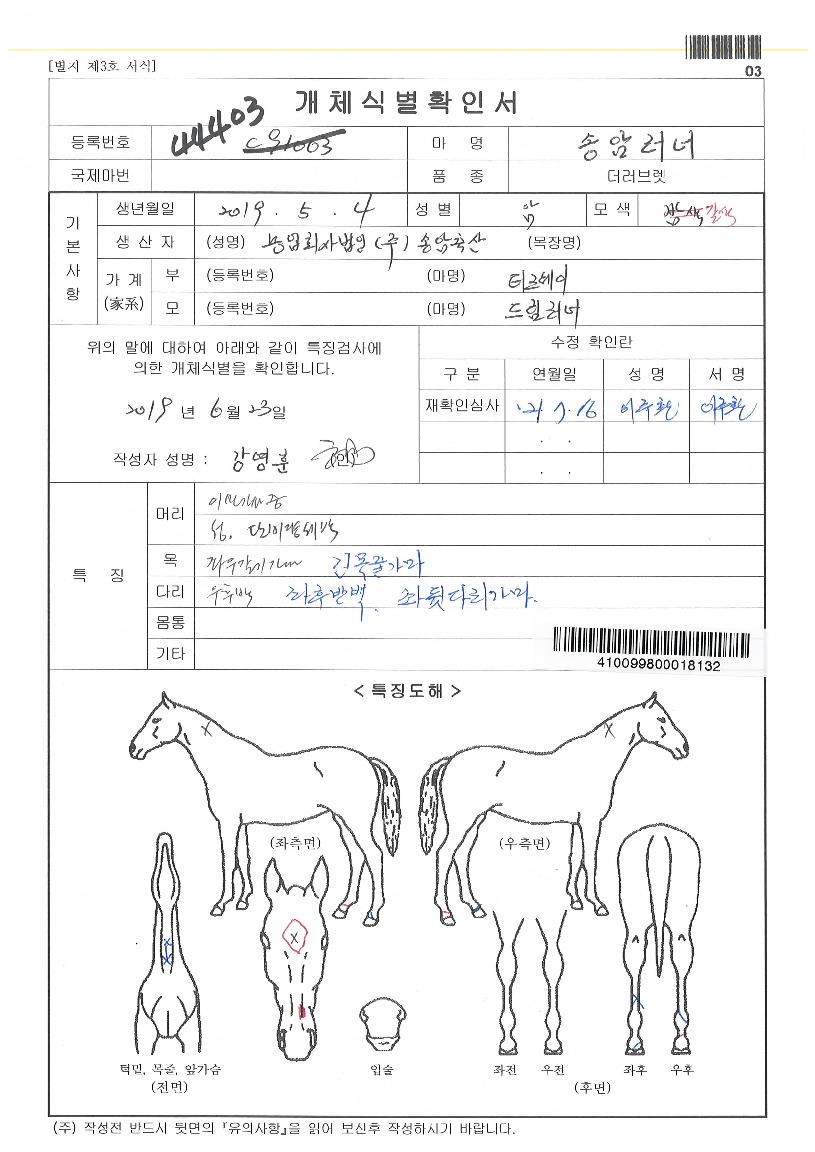 [별지 제3호 서식]
03
개체식별확인서
44403
등록번호 C91003 마 명 송암러너
국제마번 품 종 더러브렛
기본사항
생년월일 2019 . 5 . 4 성 별 암 모 색 갈색
생 산 자 (성명) 농업회사법인 (주) 송암축산 (목장명)
가 계 (家系) 부 (등록번호) (마명) 티즈세이
모 (등록번호) (마명) 드림러너
위의 말에 대하여 아래와 같이 특징검사에
의한 개체식별을 확인합니다.
2019 년 6월 23일
작성사 성명 : 강영훈
수정 확인란
구 분 연월일 성 명 서 명
재확인심사 '21 7. 16
. .
. .
특 징
머리
성.
목 긴목골가마
다리 우후백 좌후반백. 좌뒷다리가마.
몸통
기타
410099800018132
< 특징도해 >
(좌측면) (우측면)
턱밑, 목줄, 앞가슴
(전면)
입술
좌전 우전 좌후 우후
(후면)
(주) 작성전 반드시 뒷면의 『유의사항』을 읽어 보신후 작성하시기 바랍니다.